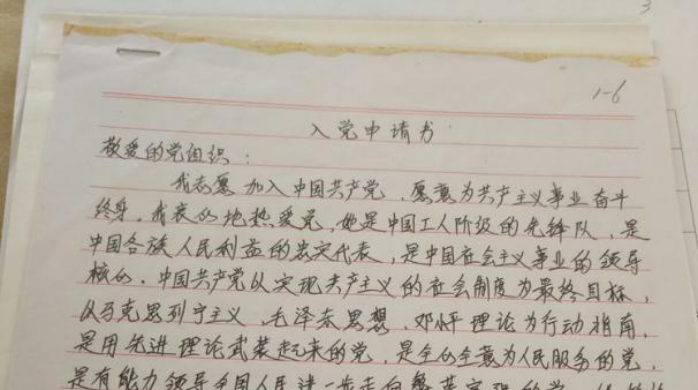 3
1-6
入党申请书
敬爱的党组织：
我志愿加入中国共产党，愿意为共产主义事业奋斗
终身。我衷心地热爱党，她是中国工人阶级的先锋队，是
中国各族人民利益的忠实代表，是中国社会主义事业的领导
核心。中国共产党以实现共产主义的社会制度为最终目标，
以马克思列宁主义、毛泽东思想、邓小平理论为行动指南，
是用先进理论武装起来的党，是全心全意为人民服务的党，
是有能力领导全国人民进一步走向繁荣